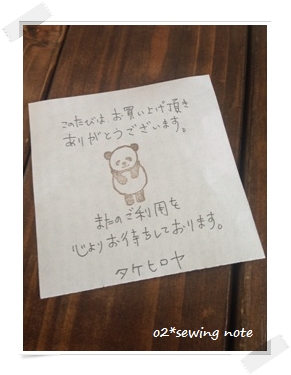 このたびは、お買い上げ頂き
ありがとうございます。
またのご利用を
心よりお待ちしております。
タケヒロヤ
o2*sewing note